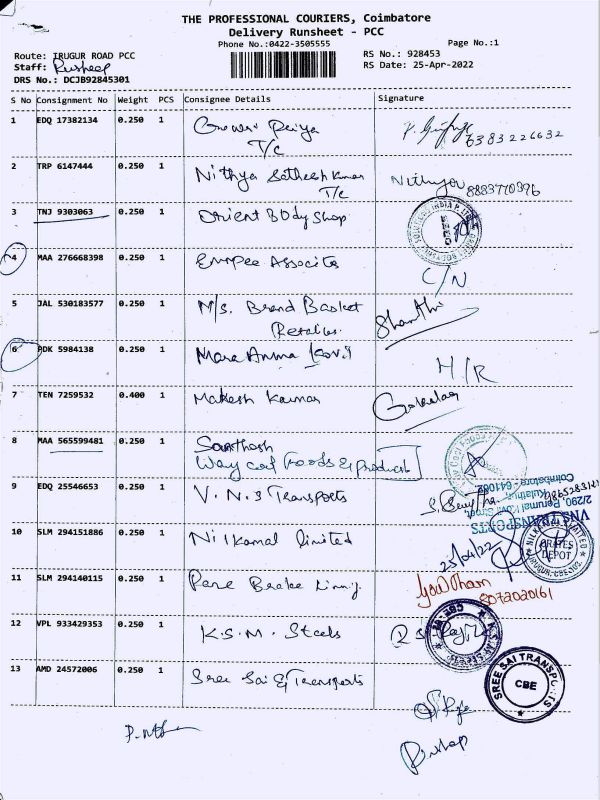 THE PROFESSIONAL COURIERS, Coimbatore
Delivery Runsheet - PCC
Phone No.:0422-3505555
Page No.:1
Route: IRUGUR ROAD PCC
RS No.: 928453
Staff:
RS Date: 25-Apr-2022
DRS No.: DCJB92845301
S No Consignment No Weight PCS Consignee Details Signature
1 EDQ 17382134 0.250 1 Priya
T/c
6383226632
2 TRP 6147444 0.250 1 Nithya Satheesh Kumar
T/c
Nithya
3 TNJ 9303063 0.250 1 Orient Body Shop
4 MAA 276668398 0.250 1 Empee Associts
C/N
5 JAL 530183577 0.250 1 M/s. Brand Basket
Retailes.
Shanthi
6 PDK 5984138 0.250 1 Mara Amma Kovil
H/R
7 TEN 7259532 0.400 1 Makesh Kumar
Gokulan
8 MAA 565599481 0.250 1 Santhosh
Way cool Foods & Product
9 EDQ 25546653 0.250 1 V.N.S Transports
2/290, Perumal Kovil Street,
Coimbatore - 641062
VNS TRANSPORTS
10 SLM 294151886 0.250 1 Nilkamal Limited
25/04/22
CRATES
DEPOT
11 SLM 294140115 0.250 1 Pare Brake
Gowtham
8072020161
12 VPL 933429353 0.250 1 K.S.M. Steels
13 AMD 24572006 0.250 1 Sree Sai & Transports
SREE SAI TRANSPORTS
CBE